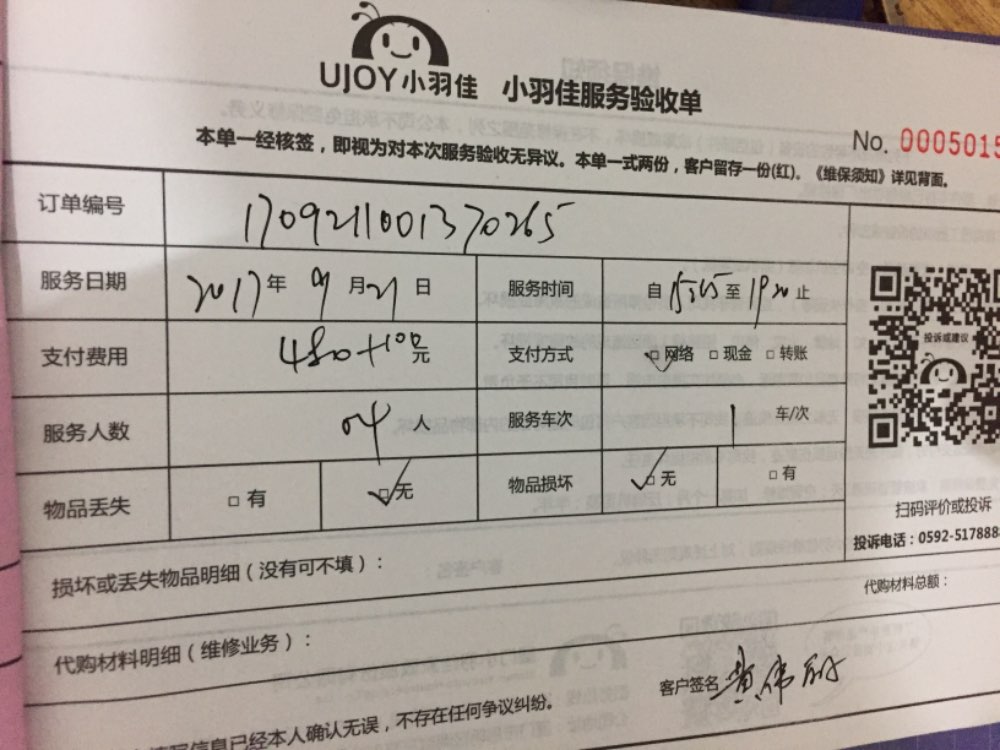 UJOY小羽佳 小羽佳服务验收单
No. 0005015
本单一经核签，即视为对本次服务验收无异议。本单一式两份，客户留存一份(红)。《维保须知》详见背面。
订单编号 1709211001370265
服务日期 2017年 09月21日 服务时间 自15:15至1920止
支付费用 480+100元 支付方式 □网络 □现金 □转账
服务人数 04人 服务车次 1 车/次
物品丢失 □有 □无 物品损坏 □无 □有
投诉或建议
扫码评价或投诉
投诉电话：0592-517888
损坏或丢失物品明细（没有可不填）：
代购材料总额：
代购材料明细（维修业务）：
客户签名
信息已经本人确认无误，不存在任何争议纠纷。